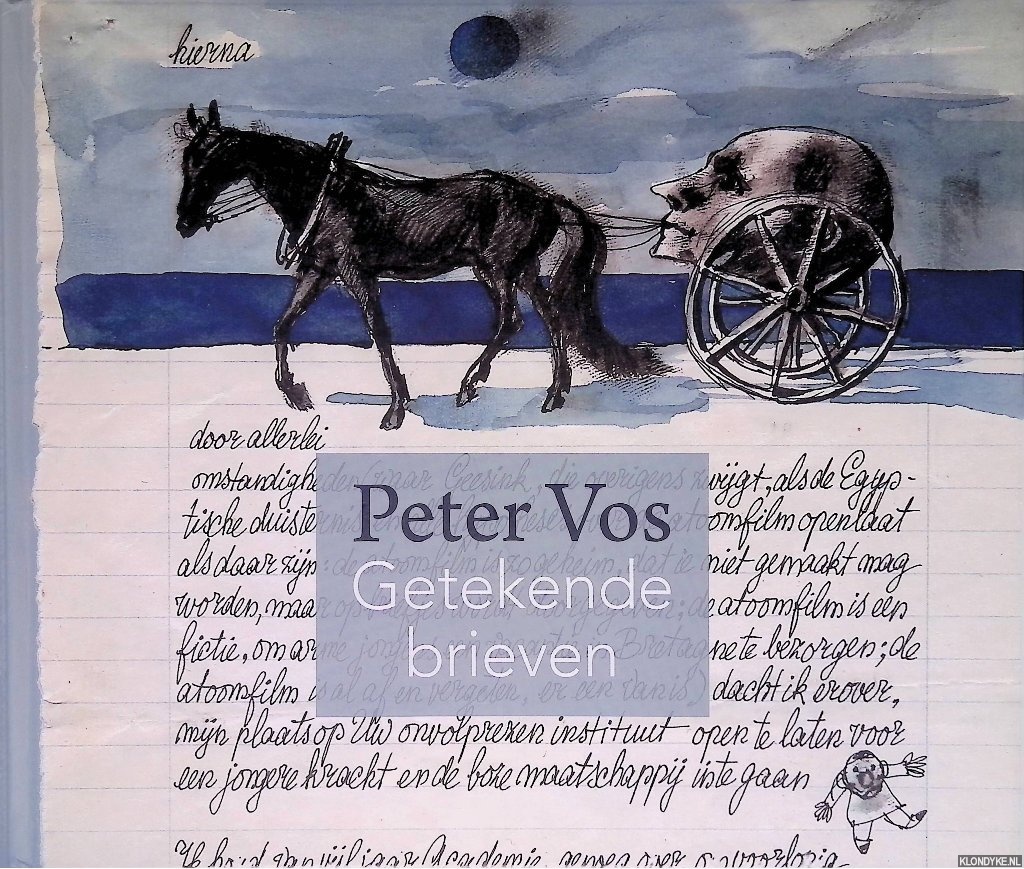 hierna
door allerlei
omstandigheden (maar Geesink, die overigens zwijgt, als de Egyp-
tische duisternis
atoomfilm openlaat
als daar zijn: de atoomfilm is zo geheim, dat ie niet gemaakt mag
worden, maar op
; de atoomfilm is een
fictie, om arme jongens een vacantie in Bretagne te bezorgen; de
atoomfilm is al af en vergeten, er een van is) dacht ik erover,
mijn plaats op Uw onvolprezen instituut open te laten voor
een jongere kracht en de boze maatschappij in te gaan
Peter Vos
Getekende
brieven
Ik houd van vijf jaar Academie
KLONDYKE.NL